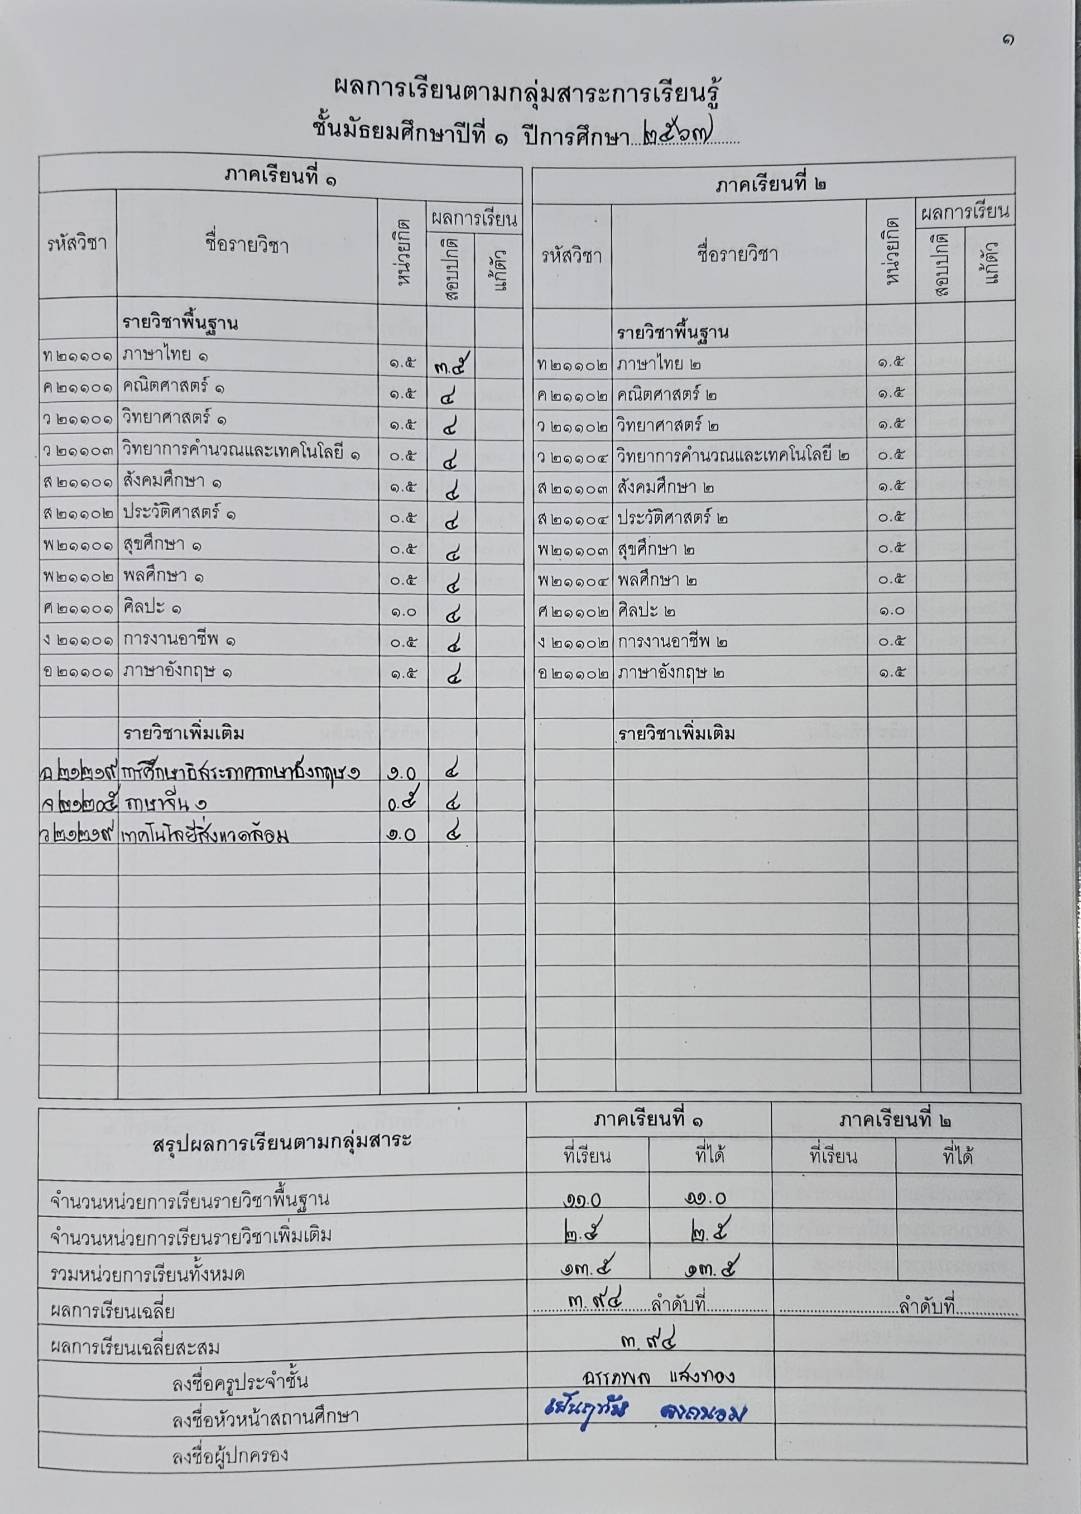 ๑
ผลการเรียนตามกลุ่มสาระการเรียนรู้
ชั้นมัธยมศึกษาปีที่ ๑ ปีการศึกษา...๒๕๖๗...
ภาคเรียนที่ ๑
รหัสวิชา ชื่อรายวิชา หน่วยกิต ผลการเรียน
สอบปกติ แก้ตัว
รายวิชาพื้นฐาน
ท ๒๑๑๐๑ ภาษาไทย ๑ ๑.๕ ๓.๕
ค ๒๑๑๐๑ คณิตศาสตร์ ๑ ๑.๕ ๔
ว ๒๑๑๐๑ วิทยาศาสตร์ ๑ ๑.๕ ๔
ว ๒๑๑๐๓ วิทยาการคำนวณและเทคโนโลยี ๑ ๐.๕ ๔
ส ๒๑๑๐๑ สังคมศึกษา ๑ ๑.๕ ๔
ส ๒๑๑๐๒ ประวัติศาสตร์ ๑ ๐.๕ ๔
พ๒๑๑๐๑ สุขศึกษา ๑ ๐.๕ ๔
พ๒๑๑๐๒ พลศึกษา ๑ ๐.๕ ๔
ศ ๒๑๑๐๑ ศิลปะ ๑ ๑.๐ ๔
ง ๒๑๑๐๑ การงานอาชีพ ๑ ๐.๕ ๔
อ ๒๑๑๐๑ ภาษาอังกฤษ ๑ ๑.๕ ๔
รายวิชาเพิ่มเติม
๒๑๒๑๙ การศึกษาอิสระภาคภาษาอังกฤษ ๑ ๑.๐ ๔
จ ๒๑๒๐๕ ภาษาจีน ๑ ๐.๕ ๔
ว ๒๑๒๑๙ เทคโนโลยีสิ่งแวดล้อม ๑.๐ ๔
ภาคเรียนที่ ๒
รหัสวิชา ชื่อรายวิชา หน่วยกิต ผลการเรียน
สอบปกติ แก้ตัว
รายวิชาพื้นฐาน
ท ๒๑๑๐๒ ภาษาไทย ๒ ๑.๕
ค ๒๑๑๐๒ คณิตศาสตร์ ๒ ๑.๕
ว ๒๑๑๐๒ วิทยาศาสตร์ ๒ ๑.๕
ว ๒๑๑๐๔ วิทยาการคำนวณและเทคโนโลยี ๒ ๐.๕
ส ๒๑๑๐๓ สังคมศึกษา ๒ ๑.๕
ส ๒๑๑๐๔ ประวัติศาสตร์ ๒ ๐.๕
พ๒๑๑๐๓ สุขศึกษา ๒ ๐.๕
พ๒๑๑๐๔ พลศึกษา ๒ ๐.๕
ศ ๒๑๑๐๒ ศิลปะ ๒ ๑.๐
ง ๒๑๑๐๒ การงานอาชีพ ๒ ๐.๕
อ ๒๑๑๐๒ ภาษาอังกฤษ ๒ ๑.๕
รายวิชาเพิ่มเติม
สรุปผลการเรียนตามกลุ่มสาระ ภาคเรียนที่ ๑ ภาคเรียนที่ ๒
ที่เรียน ที่ได้ ที่เรียน ที่ได้
จำนวนหน่วยการเรียนรายวิชาพื้นฐาน ๑๑.๐ ๑๑.๐
จำนวนหน่วยการเรียนรายวิชาเพิ่มเติม ๒.๕ ๒.๕
รวมหน่วยการเรียนทั้งหมด ๑๓.๕ ๑๓.๕
ผลการเรียนเฉลี่ย ...๓.๙๔...ลำดับที่... ...ลำดับที่...
ผลการเรียนเฉลี่ยสะสม ๓.๙๔
ลงชื่อครูประจำชั้น แสงทอง
ลงชื่อหัวหน้าสถานศึกษา
ลงชื่อผู้ปกครอง